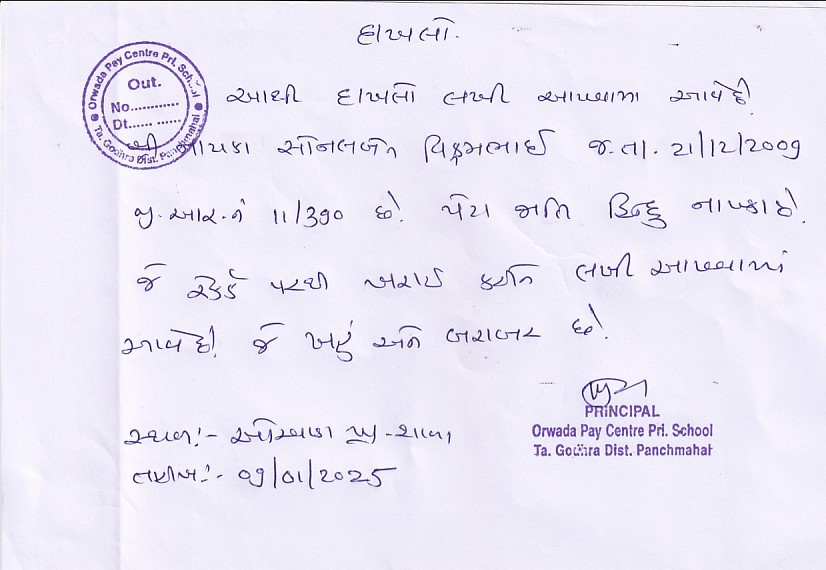 દાખલો.
Orwada Pay Centre Pri. School
Out.
No............
Dt...... ......
Ta. Godhra Dist. Panchmahal
આથી દાખલો લખી આપવામાં આવે છે
શ્રી નાયકા સોનલબેન વિક્રમભાઈ જ.તા. 21/12/2009
જી.આર.નં 11/390 છે. પેટા જાતિ હિન્દુ નાયકા છે.
જે રેકર્ડ પરથી ખરાઈ કરીને લખી આપવામાં
આવે છે. જે ખરું અને બરાબર છે.
PRINCIPAL
Orwada Pay Centre Pri. School
Ta. Godhra Dist. Panchmahal
સ્થળ:- ઓરવાડા પ્રા-શાળા
તારીખ:- 09/01/2025